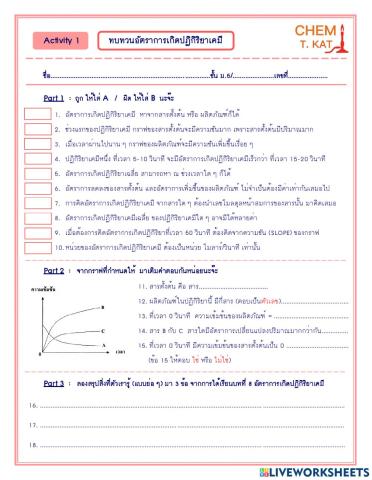 Activity 1
ทบทวนอัตราการเกิดปฏิกิริยาเคมี
CHEM
T. KAT
ชื่อ..............................................................ชั้น ม.6/....................เลขที่....................
Part 1 : ถูก ให้ใส่ A / ผิด ให้ใส่ B นะจ๊ะ
1. อัตราการเกิดปฏิกิริยาเคมี หาจากสารตั้งต้น หรือ ผลิตภัณฑ์ก็ได้
2. ช่วงแรกของปฏิกิริยาเคมี กราฟของสารตั้งต้นจะมีความชันมาก เพราะสารตั้งต้นมีปริมาณมาก
3. เมื่อเวลาผ่านไปนาน ๆ กราฟของผลิตภัณฑ์จะมีความชันเพิ่มขึ้นเรื่อย ๆ
4. ปฏิกิริยาเคมีหนึ่ง ที่เวลา 5-10 วินาที จะมีอัตราการเกิดปฏิกิริยาเคมีเร็วกว่า ที่เวลา 15-20 วินาที
5. อัตราการเกิดปฏิกิริยาเคมีเฉลี่ย สามารถหา ณ ช่วงเวลาใด ๆ ก็ได้
6. อัตราการลดลงของสารตั้งต้น และอัตราการเพิ่มขึ้นของผลิตภัณฑ์ ไม่จำเป็นต้องมีค่าเท่ากันเสมอไป
7. การคิดอัตราการเกิดปฏิกิริยาเคมี จากสารใด ๆ ต้องนำเลขโมลดุลหน้าสมการของสารนั้น มาคิดเสมอ
8. อัตราการเกิดปฏิกิริยาเคมีเฉลี่ย ของปฏิกิริยาเคมีใด ๆ อาจมีได้หลายค่า
9. เมื่อต้องการคิดอัตราการเกิดปฏิกิริยาที่เวลา 60 วินาที ต้องคิดจากความชัน (SLOPE) ของกราฟ
10. หน่วยของอัตราการเกิดปฏิกิริยาเคมี ต้องเป็นหน่วย โมลาร์/วินาที เท่านั้น
Part 2 : จากกราฟที่กำหนดให้ มาเติมคำตอบกันหน่อยนะจ๊ะ
ความเข้มข้น
B
C
A
0
เวลา
11. สารตั้งต้น คือ สาร..............................
12. ผลิตภัณฑ์ในปฏิกิริยานี้ มีกี่สาร (ตอบเป็นตัวเลข)..............................
13. ที่เวลา 0 วินาที ความเข้มข้นของผลิตภัณฑ์ = ..............................
14. สาร B กับ C สารใดมีอัตราการเปลี่ยนแปลงปริมาณมากกว่ากัน..............
15. ที่เวลา 0 วินาที มีความเข้มข้นของสารตั้งต้นเป็น 0 ..............................
(ข้อ 15 ให้ตอบ ใช่ หรือ ไม่ใช่)
Part 3 : ลองสรุปสิ่งที่ตัวเรารู้ (แบบย่อ ๆ) มา 3 ข้อ จากการได้เรียนบทที่ 8 อัตราการเกิดปฏิกิริยาเคมี
16. ..............................................................
17. ..............................................................
18. ..............................................................
LIVEWORKSHEETS